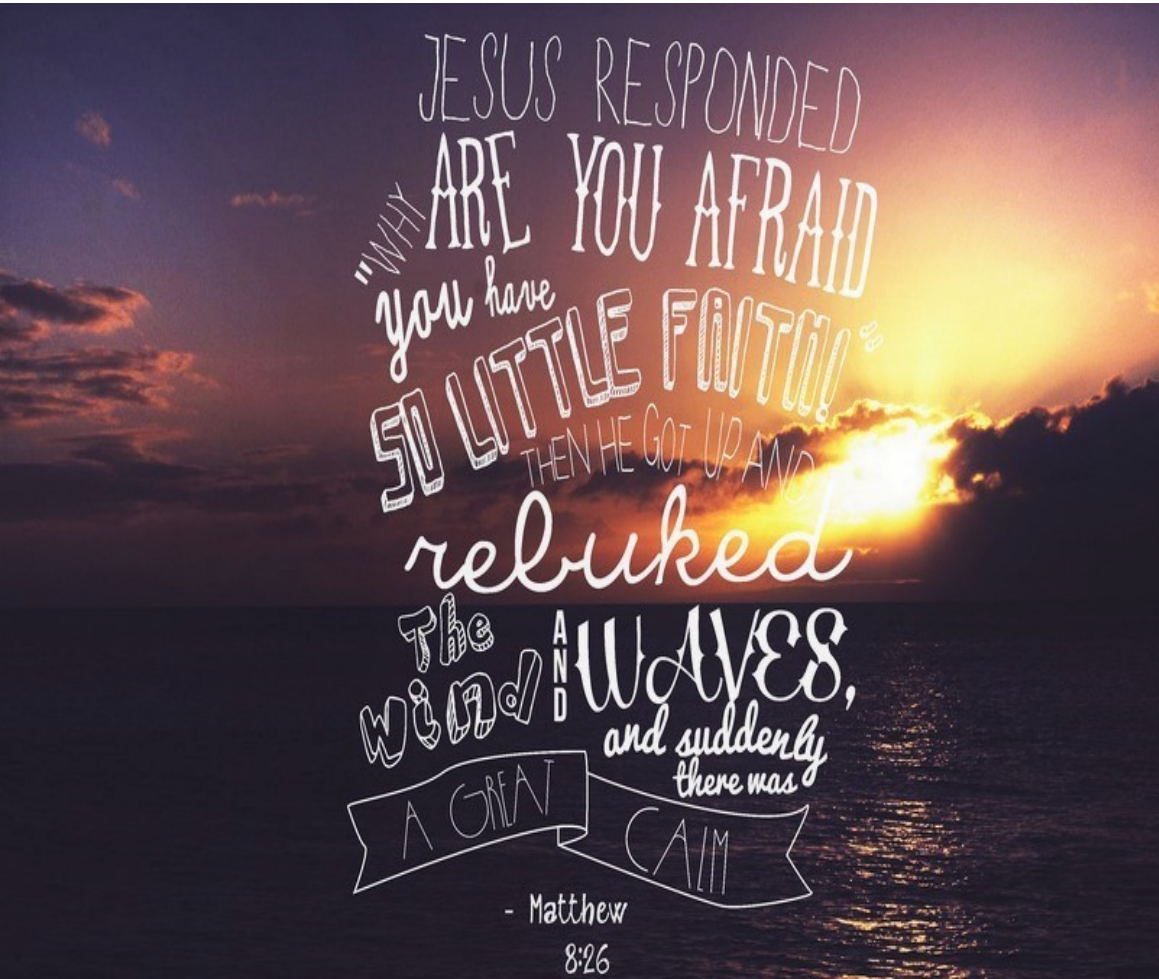 JESUS RESPONDED
"WHY ARE YOU AFRAID
you have
SO LITTLE FAITH!"
THEN HE GOT UP AND
rebuked
The
wind AND WAVES,
and suddenly
there was
A GREAT CALM
- Matthew
8:26